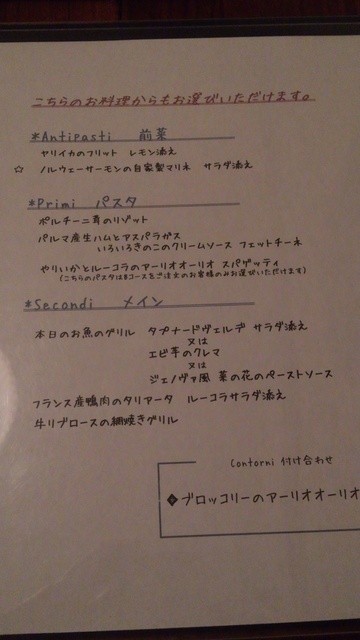 こちらのお料理からもお選びいただけます。
*Antipasti 前菜
ヤリイカのフリット レモン添え
☆ ノルウェーサーモンの自家製マリネ サラダ添え
*Primi パスタ
ポルチーニ茸のリゾット
パルマ産生ハムとアスパラガス
いろいろきのこのクリームソース フェットチーネ
やりいかとルーコラのアーリオオーリオ スパゲッティ
(こちらのパスタはBコースをご注文のお客様のみお選びいただけます)
*Secondi メイン
本日のお魚のグリル タプナードヴェルデ サラダ添え
又は
エビ芋のクレマ
又は
ジェノヴァ風 菜の花のペーストソース
フランス産鴨肉のタリアータ ルーコラサラダ添え
牛リブロースの網焼きグリル
Contorni 付け合わせ
◆ブロッコリーのアーリオオーリオ